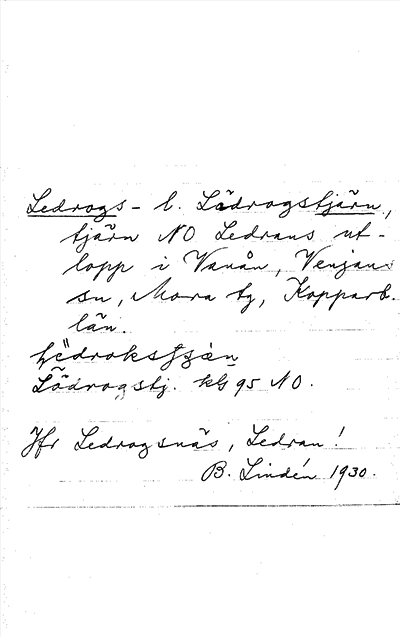 Ledrogs- l. Lödrogstjärn,
tjärn NO Ledrans ut-
lopp i Vanån, Venjans
sn, Mora tg, Kopparb.
län.
Lödrogstj. kbl 95 NO.
Jfr Ledrogsnäs, Ledran!
B. Lindén 1930.